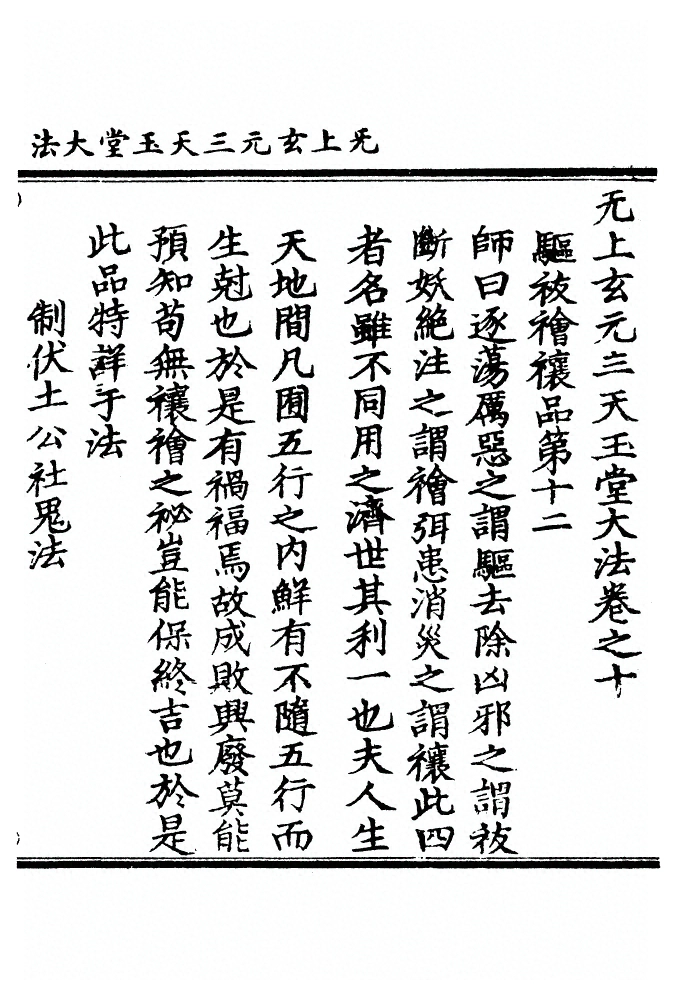 无上玄元三天玉堂大法
无上玄元三天玉堂大法卷之十
驅祓禬禳品第十二
師曰逐蕩厲惡之謂驅去除凶邪之謂祓
斷妖絶注之謂禬弭患消災之謂禳此四
者名雖不同用之濟世其利一也夫人生
天地間凡囿五行之内鮮有不隨五行而
生尅也於是有禍福焉故成敗興廢莫能
預知苟無禳禬之祕豈能保終吉也於是
此品特詳于法
制伏土公社鬼法